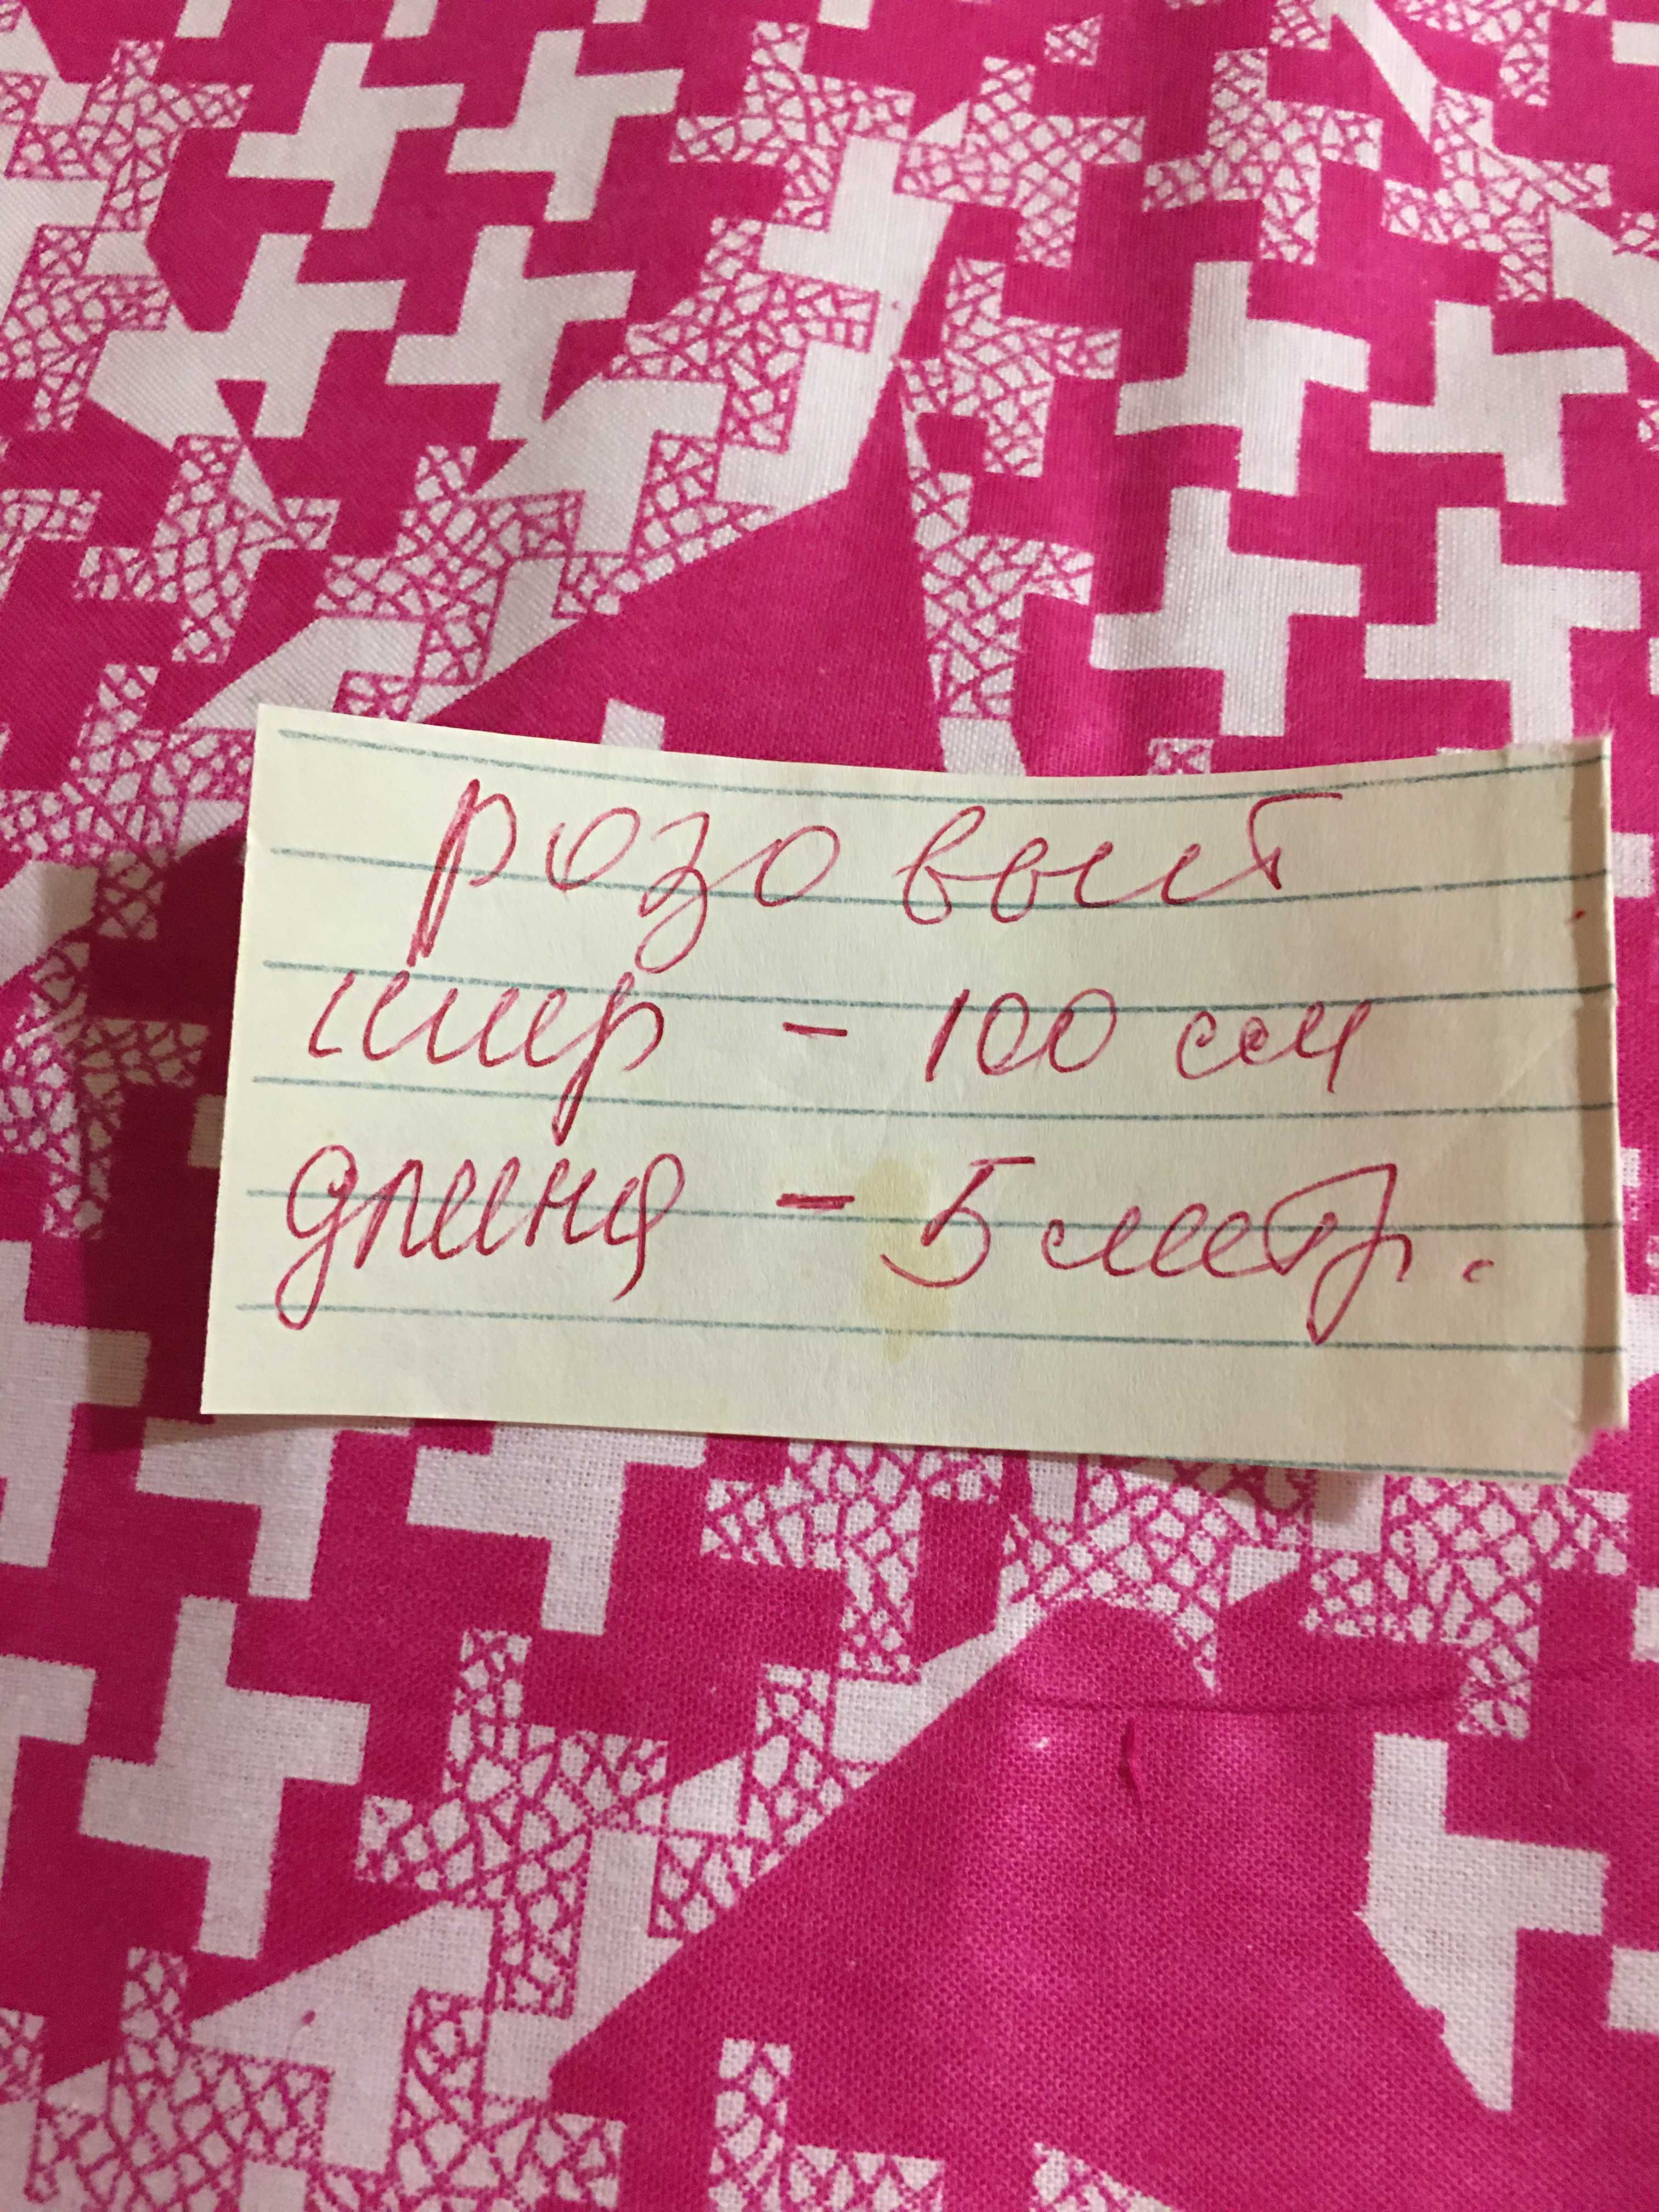 розовый
шир - 100 см
длина - 5 метр.